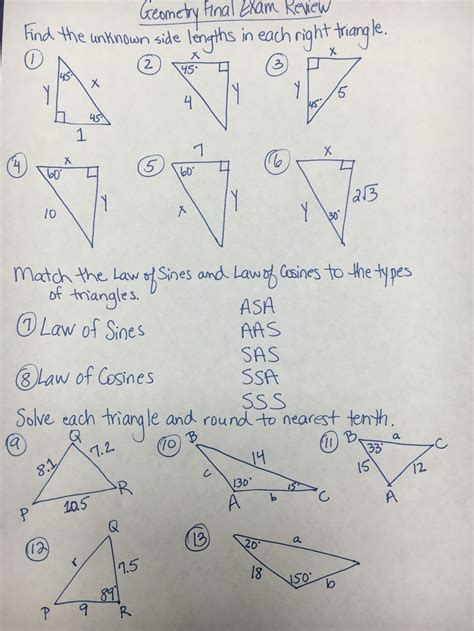 Geometry Final Exam Review
Find the unknown side lengths in each right triangle.
① 45° x y 45° 1
② x 45° 4 y
③ x y 45° 5
④ x 60° 10 y
⑤ 7 60° x y
⑥ x y 30° 2√3
Match the Law of Sines and Law of Cosines to the types
of triangles.
ASA
⑦ Law of Sines
AAS
SAS
⑧ Law of Cosines
SSA
SSS
Solve each triangle and round to nearest tenth.
⑨ Q 8.1 7.2 P 10.5 R
⑩ B 14 c 130° 15° A b C
⑪ B a C 33° 15 12 A
⑫ Q r 7.5 89° P 9 R
⑬ 20° a 18 150° b